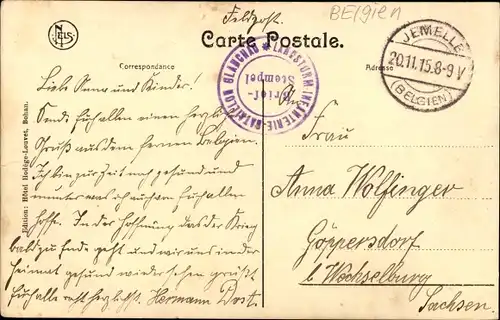 BElgien
Feldpost.
NELS
Carte Postale.
Correspondance
Adresse
JEMELLE
20.11.15.8-9V
(BELGIEN)
LANDSTURM-INFANTERIE-BATAILLON GLAUCHAU
Brief-
Stempel
Liebe Anna und Kinder!
Sende Euch allen einen herzl.
Gruß aus dem fernen Belgien.
Ich bin zur Zeit noch gesund und
munter was ich auch von Euch allen
hoffe. In der Hoffnung das der Krieg
bald zu Ende geht und wir uns in der
Heimat gesund wiedersehen grüßt
Euch alle recht herzlichst. Hermann Dost.
An
Frau
Anna Wolfinger
Göppersdorf
b. Wechselburg
Sachsen.
Edition: Hôtel Hodège-Louvet, Bohan.